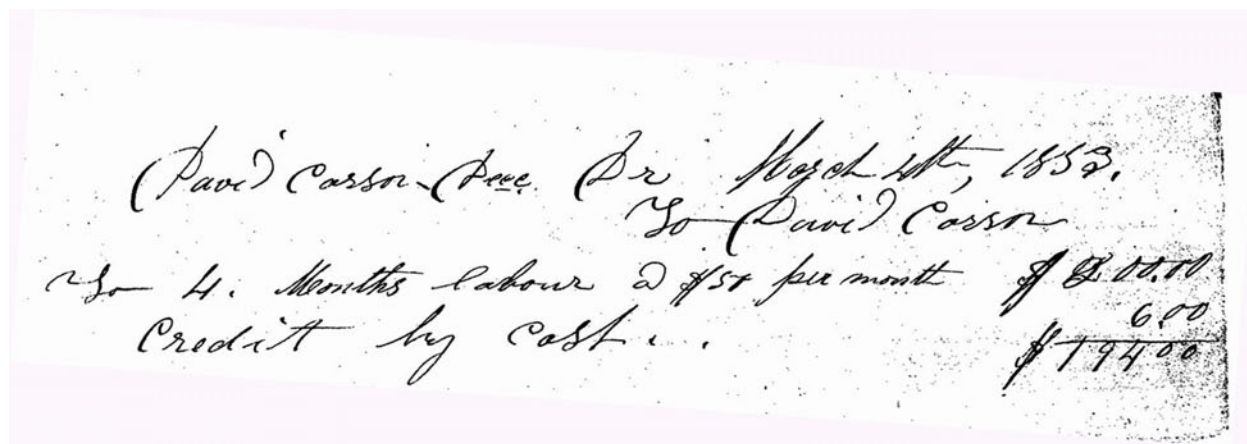 David Carson Decc. Dr March 4th, 1853.
To David Carson
To 4. Months labour @ $50 per month $200.00
Credit by Cash... 6.00
$194.00